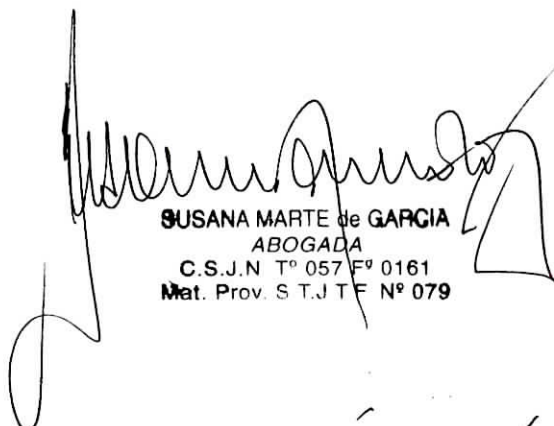 SUSANA MARTE de GARCIA
ABOGADA
C.S.J.N Tº 057 Fº 0161
Mat. Prov. S T.J T F Nº 079